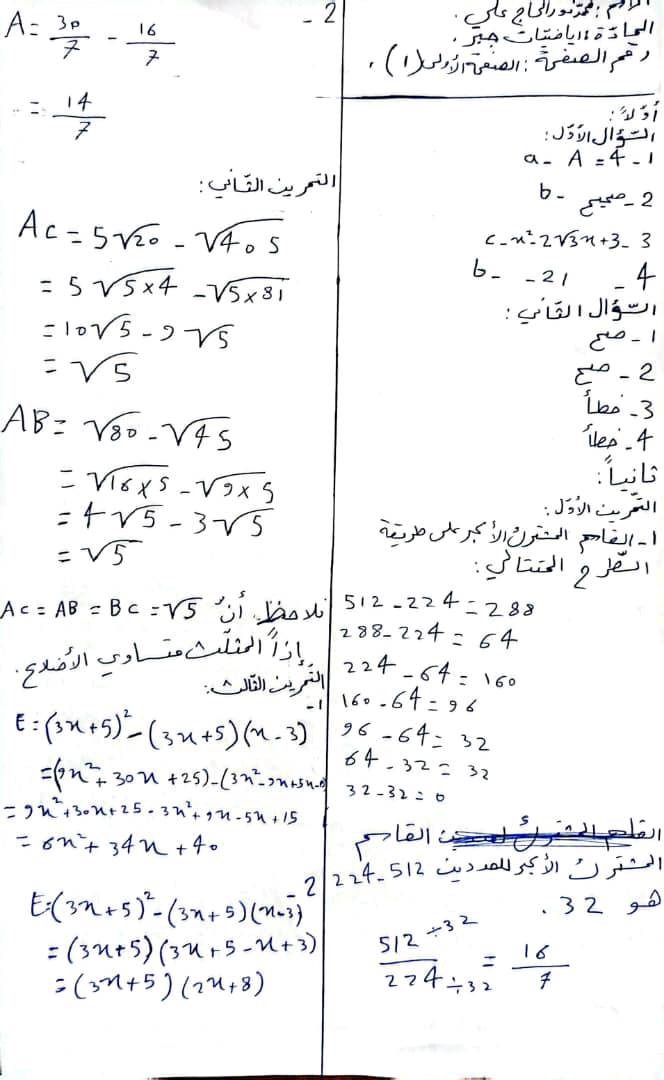 الاسم : محمد نور الحاج علي .
المادة : رياضيات جبر .
رقم الصفحة : الصفحة الأولى (1) .
أوّلاً :
السّؤال الأوّل :
1 - a - A = 4
2 - b - صحيح
3 - c - x² - 2√3x + 3
4 - b - -21
السّؤال الثّاني :
1 - صح
2 - صح
3 - خطأ
4 - خطأ
ثانياً :
التّمرين الأوّل :
1 - القاسم المشترك الأكبر على طريقة
الطّرح المتتالي :
512 - 224 = 288
288 - 224 = 64
224 - 64 = 160
160 - 64 = 96
96 - 64 = 32
64 - 32 = 32
32 - 32 = 0
القاسم
المشترك الأكبر للعددين 512 - 224
هو 32 .
512 ÷ 32 / 224 ÷ 32 = 16 / 7
2 -
A = 30 / 7 - 16 / 7
= 14 / 7
التمرين الثّاني :
Ac = 5√20 - √405
= 5√5×4 - √5×81
= 10√5 - 9√5
= √5
AB = √80 - √45
= √16×5 - √9×5
= 4√5 - 3√5
= √5
نلاحظ أنّ Ac = AB = Bc = √5
إذاً المثلّث متساوي الأضلاع .
التّمرين الثّالث :
1 -
E = (3x+5)² - (3x+5)(x-3)
= (9x² + 30x + 25) - (3x² - 9x + 5x -
= 9x² + 30x + 25 - 3x² + 9x - 5x + 15
= 6x² + 34x + 40
2 -
E = (3x+5)² - (3x+5)(x-3)
= (3x+5)(3x+5-x+3)
= (3x+5)(2x+8)